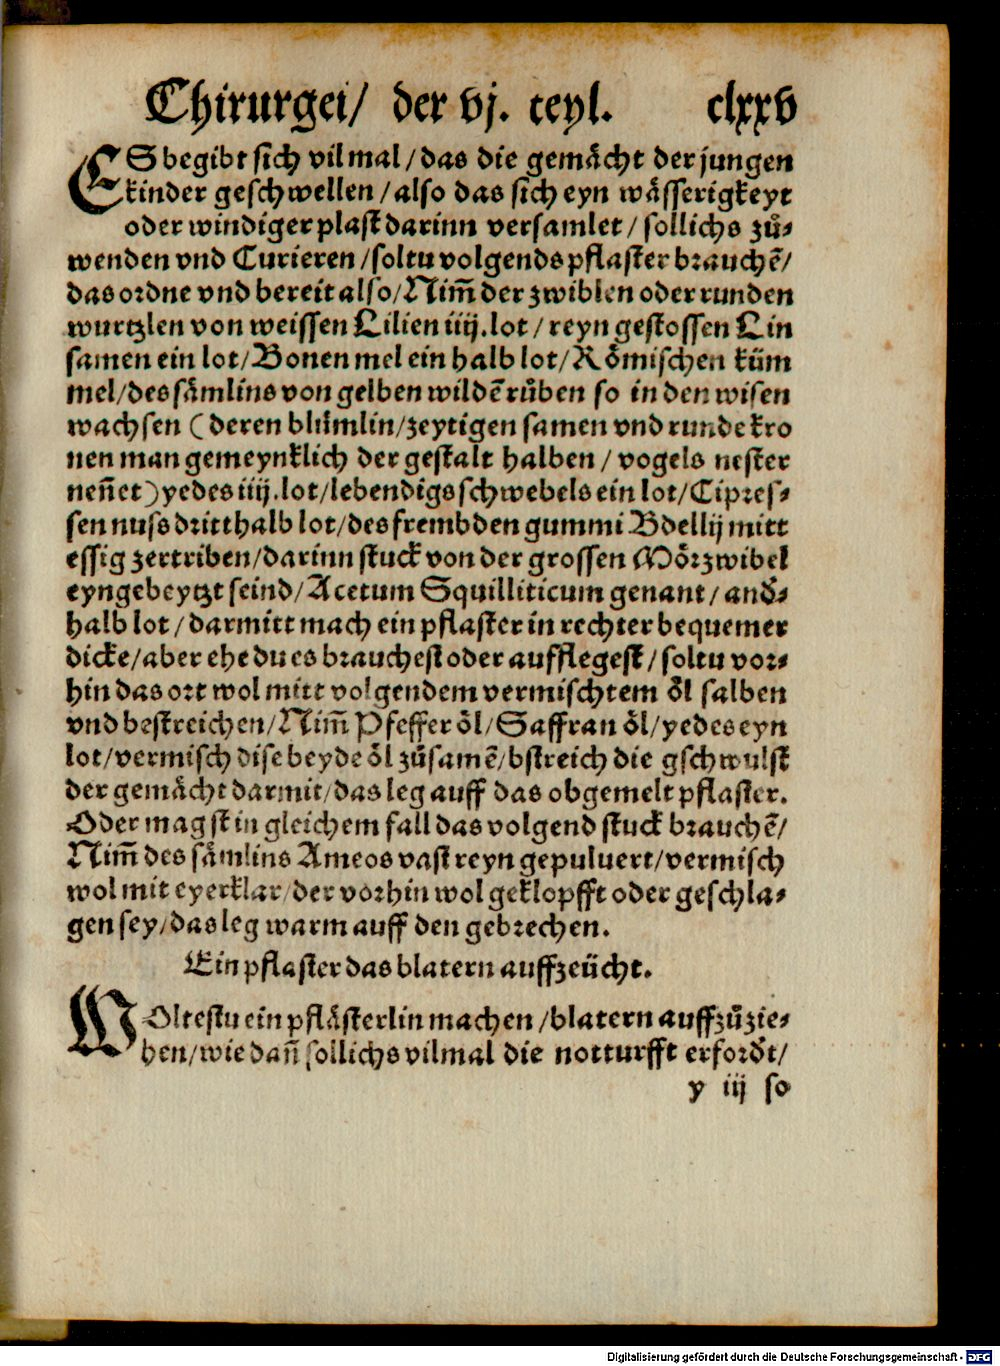 Chirurgei/ der vj. teyl. clxxv
ES begibt sich vil mal/das die gemächt der jungen
kinder geschwellen/also das sich eyn wässerigkeyt
oder windiger plast darinn versamlet/sollichs zů-
wenden vnd Curieren/soltu volgends pflaster brauchē/
das ordne vnd bereit also/Nim̄ der zwiblen oder runden
wurtzlen von weissen Lilien iiij.lot/reyn gestossen Lin
samen ein lot/Bonen mel ein halb lot/Römischen küm
mel/des sämlins von gelben wildē růben so in den wisen
wachsen (deren blümlin/zeytigen samen vnd runde kro
nen man gemeynklich der gestalt halben/vogels nester
neñet)yedes iiij.lot/lebendigs schwebels ein lot/Cipres-
sen nuss dritthalb lot/des frembden gummi Bdellij mitt
essig zertriben/darinn stuck von der grossen Mörzwibel
eyngebeytzt seind/Acetum Squilliticum genant/andͤ-
halb lot/darmitt mach ein pflaster in rechter bequemer
dicke/aber ehe du es brauchest oder aufflegest/soltu vor-
hin das ort wol mitt volgendem vermischtem öl salben
vnd bestreichen/Nim̄ Pfeffer öl/Saffran öl/yedes eyn
lot/vermisch dise beyde öl zůsamē/bstreich die gschwulst
der gemächt darmit/das leg auff das obgemelt pflaster.
Oder magst in gleichem fall das volgend stuck brauchē/
Nim̄ des sämlins Ameos vast reyn gepuluert/vermisch
wol mit eyerklar/der vorhin wol geklopfft oder geschla-
gen sey/das leg warm auff den gebrechen.
Ein pflaster das blatern auffzeücht.
WOltestu ein pflästerlin machen/blatern auffzůzie-
hen/wie dañ sollichs vilmal die notturfft erfordͤt/
y iij so
Digitalisierung gefördert durch die Deutsche Forschungsgemeinschaft - DFG